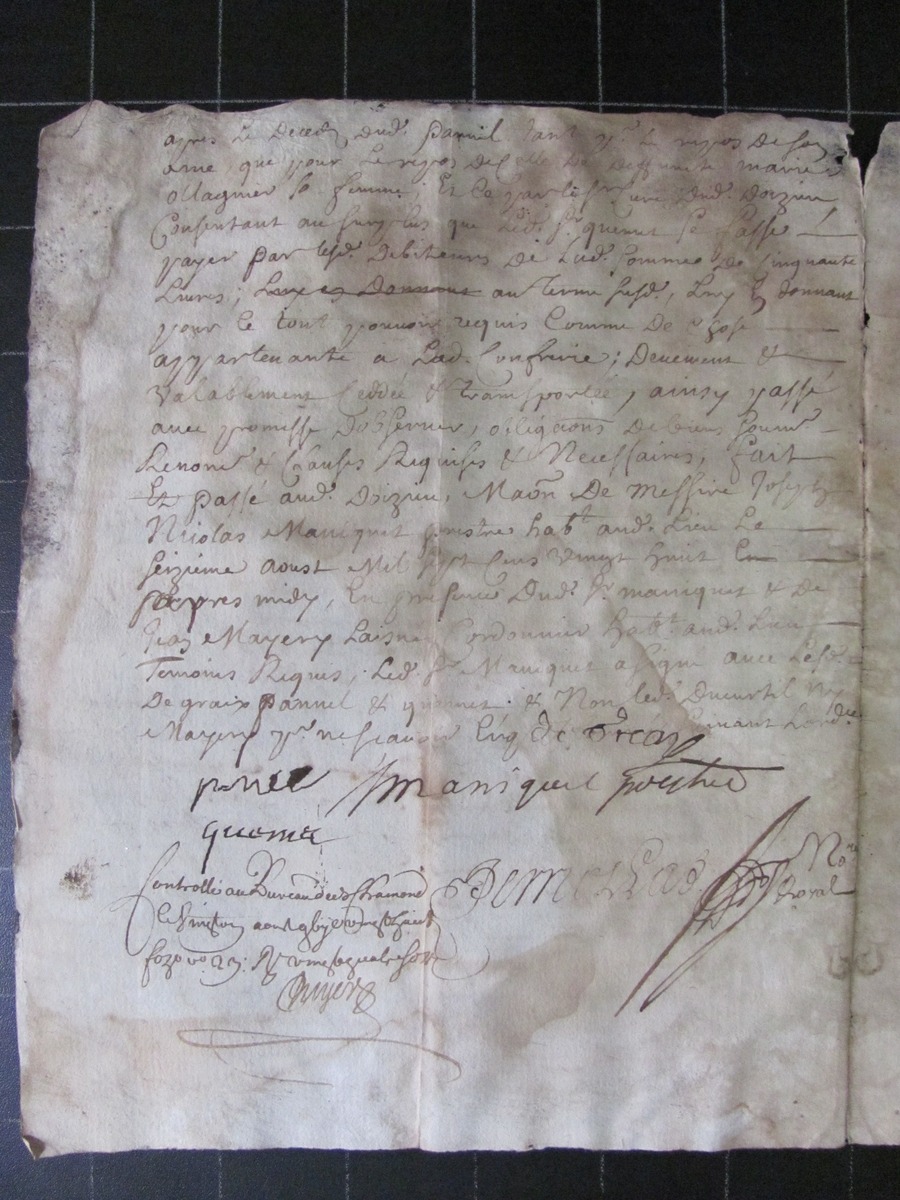 apres le Deced dud. parnil tant pr. le repos de son
ame, que pour le repos de celle de deffuncte marie
ollagnier sa femme, Et ce par le sr. Curé dud. Doizieu
Consentant au surplus que led. sr. quemet se fasse
payer par lesd. debiteurs de lad. somme de cinquante
Livres; au terme susd., Luy donnant
pour le tout pouvoir requis Comme de chose
appartenante a Lad. Confrerie; Deuement &
valablement ceddée & transportée, ainsy passé
avec promisse d'observer, obligaons. de biens soumr.
Renonr. & Clauses Requises & Necessaires, fait
Et passé aud. Doizieu, Maon. De Messire Joseph
Nicolas Maniquet prestre habt. aud. Lieu Le
seizieme aoust Mil sept cens vingt huit En
apres midy, En presence dud. sr. maniquet & De
Jean Mayery Laisne Cordonnier habt. aud. Lieu
Temoins Requis, Led. sr. Maniquet a signé avec Lesd.
De & quemet & Non led. Ducurtil Ny
Mayery pr. ne scavoir Enq.
maniquet
quemet
No.
Royal
Controllé au Bureau de St Chamond
le vingt aoust vingt huit
fozo vo 23. R. vingt quatre sols